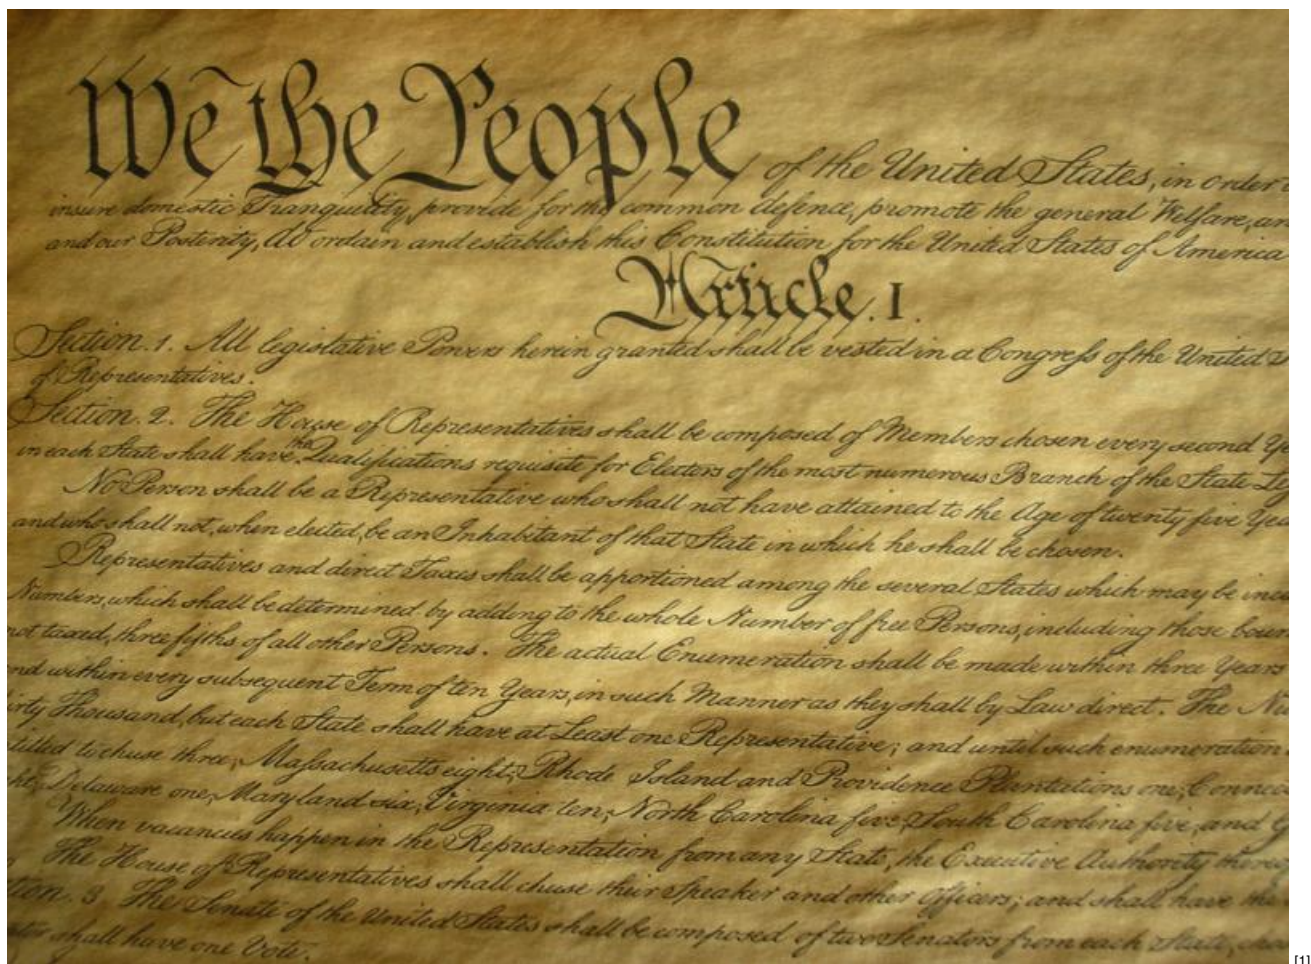 We the People of the United States, in order
insure domestic Tranquility, provide for the common defence, promote the general Welfare, an
and our Posterity, do ordain and establish this Constitution for the United States of America
Article. I.
Section. 1. All legislative Powers herein granted shall be vested in a Congress of the United S
of Representatives.
Section. 2. The House of Representatives shall be composed of Members chosen every second Ye
in each State shall have the Qualifications requisite for Electors of the most numerous Branch of the State Leg
No Person shall be a Representative who shall not have attained to the Age of twenty five Yea
and who shall not, when elected, be an Inhabitant of that State in which he shall be chosen.
Representatives and direct Taxes shall be apportioned among the several States which may be inclu
Numbers, which shall be determined by adding to the whole Number of free Persons, including those boun
not taxed, three fifths of all other Persons. The actual Enumeration shall be made within three Years
nd within every subsequent Term of ten Years, in such Manner as they shall by Law direct. The Nu
irty Thousand, but each State shall have at Least one Representative; and until such enumeration
titled to chuse three, Massachusetts eight, Rhode Island and Providence Plantations one, Connec
ght, Delaware one, Maryland six, Virginia ten, North Carolina five, South Carolina five, and G
When vacancies happen in the Representation from any State, the Executive Authority thereof
The House of Representatives shall chuse their Speaker and other Officers; and shall have the
tion. 3. The Senate of the United States shall be composed of two Senators from each State, chos
ator shall have one Vote.
[1]